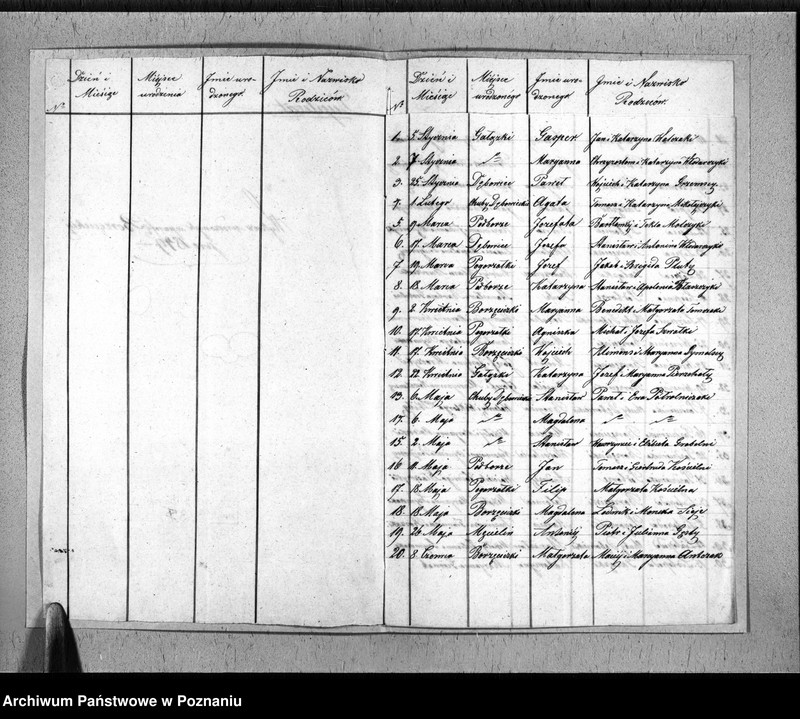 Nº Dzień i Miejsce Imie uro- Imie i Nazwisko
Miesiąc urodzenia dzonego Rodziców
Nº Dzień i Miejsce Imie uro- Imie i Nazwisko
Miesiąc urodzonego dzonego Rodziców
1. 5. Stycznia Gałązki Gasper Jan i Katarzyna Walczaki
2. 7 Stycznia -"- Maryanna Chryzostom i Katarzyna Włodarczyki
3. 25. Stycznia Dębowiec Paweł Wojciech i Katarzyna
4. 1. Lutego Chuby Dębowieckie Agata Tomasz i Katarzyna Mikołajczyki
5. 9. Marca Podborze Józefata Bartłomiej i Tekla
6. 17. Marca Dębowiec Józefa Stanisław i Antonina Włodarczyki
7 19. Marca Pogorzałki Józef Jakób i Brygida Pluty
8. 18. Marca Podborze Katarzyna Stanisław i Apolonia
9. 2. Kwietnia Borzęciczki Maryanna Benedikt i Małgorzata Tomczaki
10. 17. Kwietnia Pogorzałki Agnieszka Michał i Józefa
11. 17. Kwietnia Borzęciczki Wojciech Klemens i Maryanna
12. 22. Kwietnia Gałązki Katarzyna Józef i Maryanna
13. 6. Maja Chuby Dębowieckie Stanisław Paweł i Ewa
14. 6. Maja -"- Magdalena -"- -"-
15. 2. Maja -"- Stanisław Wawrzyniec i Elżbieta
16 11. Maja Podborze Jan Tomasz i Gertruda Kościelni
17. 18. Maja Pogorzałki Filip Małgorzata Kościelna
18. 18. Maja Borzęciczki Magdalena Ludwik i Monika
19. 26. Maja Mycielin Antoni Piotr i Julianna
20. 8. Czerwca Borzęciczki Małgorzata Maciej i Maryanna Antczak
Archiwum Państwowe w Poznaniu